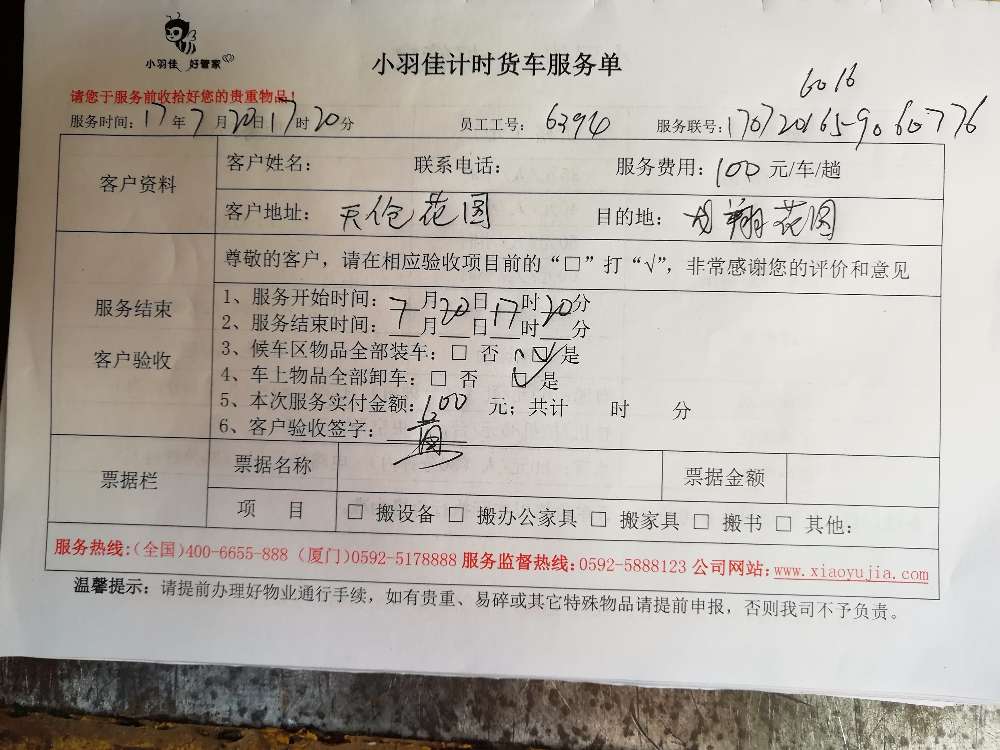 小羽佳 好管家
小羽佳计时货车服务单
6016
请您于服务前收拾好您的贵重物品！
服务时间：17年7月20日17时20分 员工工号：6394 服务联号：
客户资料
客户姓名： 联系电话： 服务费用：100元/车/趟
客户地址：天伦花园 目的地：龙翔花园
尊敬的客户，请在相应验收项目前的“□”打“√”，非常感谢您的评价和意见
服务结束
客户验收
1、服务开始时间：7月20日17时20分
2、服务结束时间：月 日 时 分
3、候车区物品全部装车：□ 否 ☑是
4、车上物品全部卸车：□ 否 ☑是
5、本次服务实付金额：100 元；共计 时 分
6、客户验收签字：
票据栏
票据名称 票据金额
项 目 □ 搬设备 □ 搬办公家具 □ 搬家具 □ 搬书 □ 其他：
服务热线：(全国)400-6655-888（厦门)0592-5178888 服务监督热线：0592-5888123 公司网站：www.xiaoyujia.com
温馨提示：请提前办理好物业通行手续，如有贵重、易碎或其它特殊物品请提前申报，否则我司不予负责。